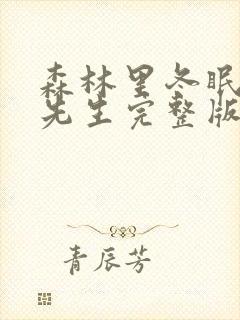 森林里冬眠
先生完整版
青辰芳